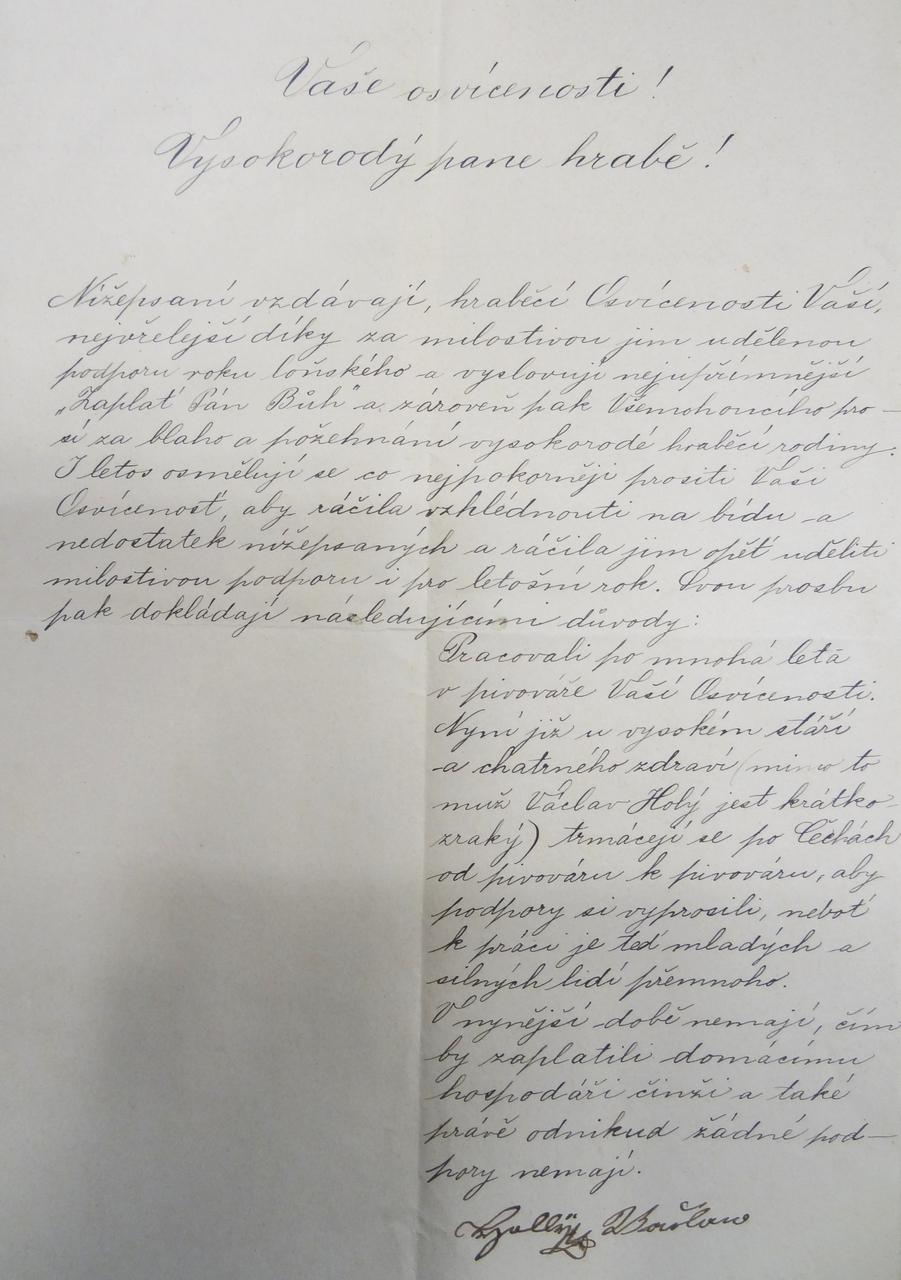 Váše osvícenosti!
Vysokorodý pane hrabě!
Nížepsaní vzdávají, hraběcí Osvícenosti Vaší,
nejvřelejší díky za milostivou jim udělenou
podporu roku loňského a vyslovují nejupřímnější
„Zaplať Pán Bůh" a zároveň pak Všemohoucího pro-
sí za blaho a požehnání vysokorodé hraběcí rodiny.
I letos osmělují se co nejpokorněji prositi Vaši
Osvícenosť, aby ráčila vzhlédnouti na bídu a
nedostatek nížepsaných a ráčila jim opět uděliti
milostivou podporu i pro letošní rok. Svou prosbu
pak dokládají následujícími důvody:
Pracovali po mnohá letá
v pivováře Vaší Osvícenosti.
Nyní již u vysokém stáří
a chatrného zdraví (mimo to
muž Václav Holý jest krátko-
zraký) trmácejí se po Čechách
od pivováru k pivováru, aby
podpory si vyprosili, neboť
k práci je teď mladých a
silných lidí přemnoho.
V nynější době nemají, čím
by zaplatili domácímu
hospodáři činži a také
právě odnikud žádné pod-
pory nemají.